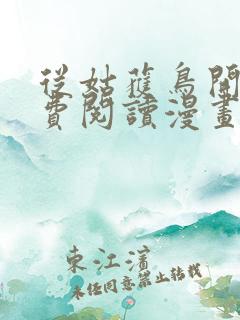 從姑蘇鳥開
費閱讀漫畫
東江濱
未經同意禁止轉載